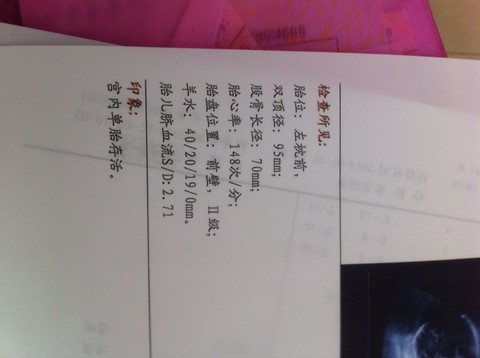 检查所见:
胎位: 左枕前,
双顶径: 95mm;
股骨长径: 70mm;
胎心率: 148次/分;
胎盘位置: 前壁, II级;
羊水: 40/20/19/0mm。
胎儿脐血流S/D:2.71
印象:
宫内单胎存活。